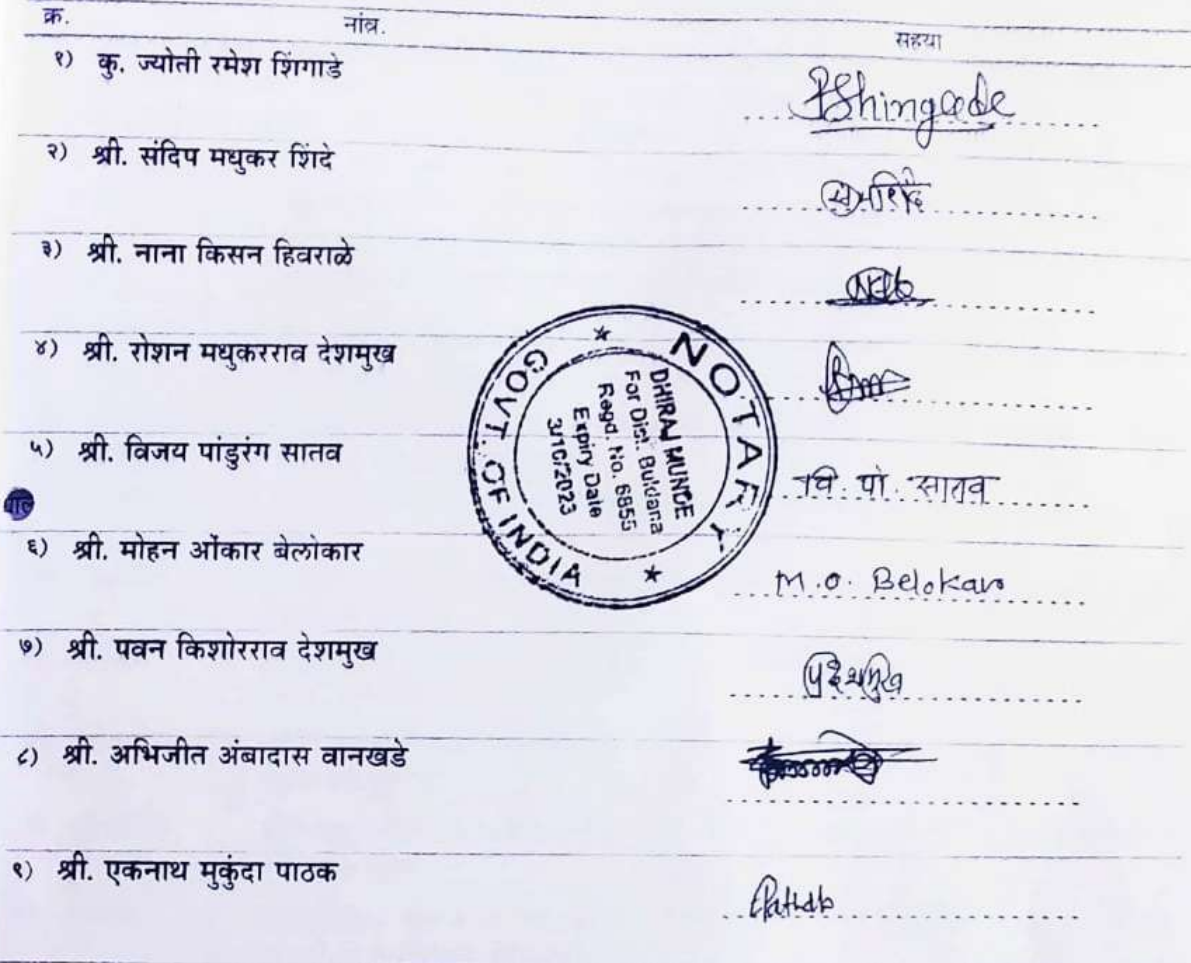 क्र. नांव. सहया
१) कु. ज्योती रमेश शिंगाडे Shingade
२) श्री. संदिप मधुकर शिंदे
३) श्री. नाना किसन हिवराळे
४) श्री. रोशन मधुकरराव देशमुख
५) श्री. विजय पांडुरंग सातव वि. पां. सातव
६) श्री. मोहन ओंकार बेलोकार M.O. Belokar
७) श्री. पवन किशोरराव देशमुख पदेशमुख
८) श्री. अभिजीत अंबादास वानखडे
९) श्री. एकनाथ मुकुंदा पाठक
NOTARY
GOVT. OF INDIA
DHIRAJ MUNDE
For Dist. Buldana
Regd. No. 6855
Expiry Date
3/10/2023